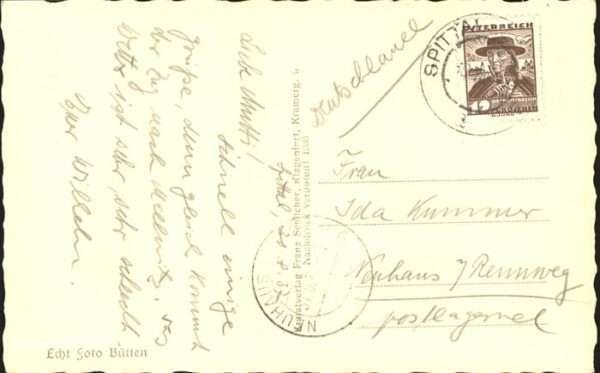 Spittal, 28. 8. 34
Liebe Mutti!
Schnell einige
Grüße, denn gleich kommt
der Zug nach Mallnitz. Das
Wetter ist sehr sehr schlecht
Euer Wilhelm.
Echt Foto Bütten
Kunstverlag Franz Schilcher, Klagenfurt, Kramerg. 6
Nachdruck verboten!
Deutschland
SPITTAL
ÖSTERREICH
Frau
Ida Kummer
Neuhaus / Rennweg
postlagernd
NEUHAUS